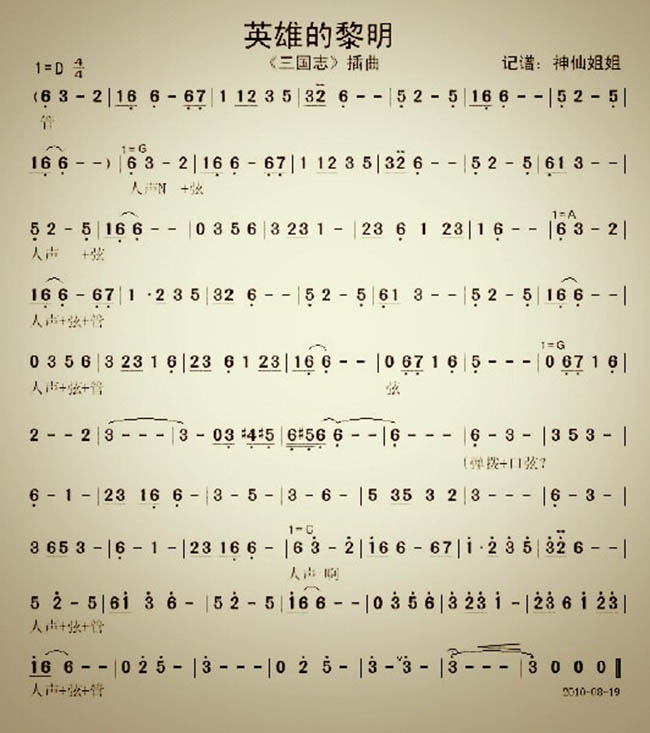 英雄的黎明
《三国志》插曲
1=D 4/4 记谱：神仙姐姐
(6 3 - 2 | 16 6 - 67 | 1 1 2 3 5 | 32 6 - - | 5 2 - 5 | 16 6 - - | 5 2 - 5 |
管
1=G
16 6 - - ) | 6 3 - 2 | 16 6 - 67 | 1 1 2 3 5 | 32 6 - - | 5 2 - 5 | 61 3 - - |
人声N +弦
1=A
5 2 - 5 | 16 6 - - | 0 3 5 6 | 3 23 1 - | 23 6 1 23 | 1 6 - - | 6 3 - 2 |
人声 +弦
16 6 - 67 | 1 · 2 3 5 | 32 6 - - | 5 2 - 5 | 61 3 - - | 5 2 - 5 | 16 6 - |
人声+弦+管
1=G
0 3 5 6 | 3 23 1 6 | 23 6 1 23 | 16 6 - - | 0 67 1 6 | 5 - - - | 0 67 1 6 |
人声+弦+管 弦
2 - - 2 | 3 - - - | 3 - 03 #4#5 | 6#56 6 - - | 6 - - - | 6 - 3 - | 3 5 3 - |
(弹拨+口弦?
6 - 1 - | 23 16 6 - | 3 - 5 - | 3 - 6 - | 5 35 3 2 | 6 - - - | 3 - 6 - |
1=C
3 65 3 - | 6 - 1 - | 23 16 6 - | 6 3 - 2 | 16 6 - 67 | 1 · 2 3 5 | 32 6 - - |
人声 啊
5 2 - 5 | 61 3 6 - | 5 2 - 5 | 16 6 - - | 0 3 5 6 | 3 23 1 - | 23 6 1 23 |
人声+弦+管
16 6 - - | 0 2 5 - | 3 - - - | 3 - - - | 0 2 5 - | 3 - 3 - | 3 - - - | 3 0 0 0 ‖
人声+弦+管 2010-08-19